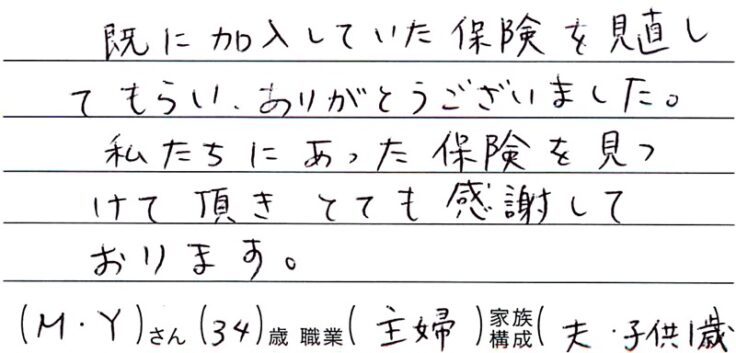 既に加入していた保険を見直し
てもらい、ありがとうございました。
私たちにあった保険を見つ
けて頂きとても感謝して
おります。
(M・Y)さん(34)歳 職業(主婦)家族構成(夫・子供1歳